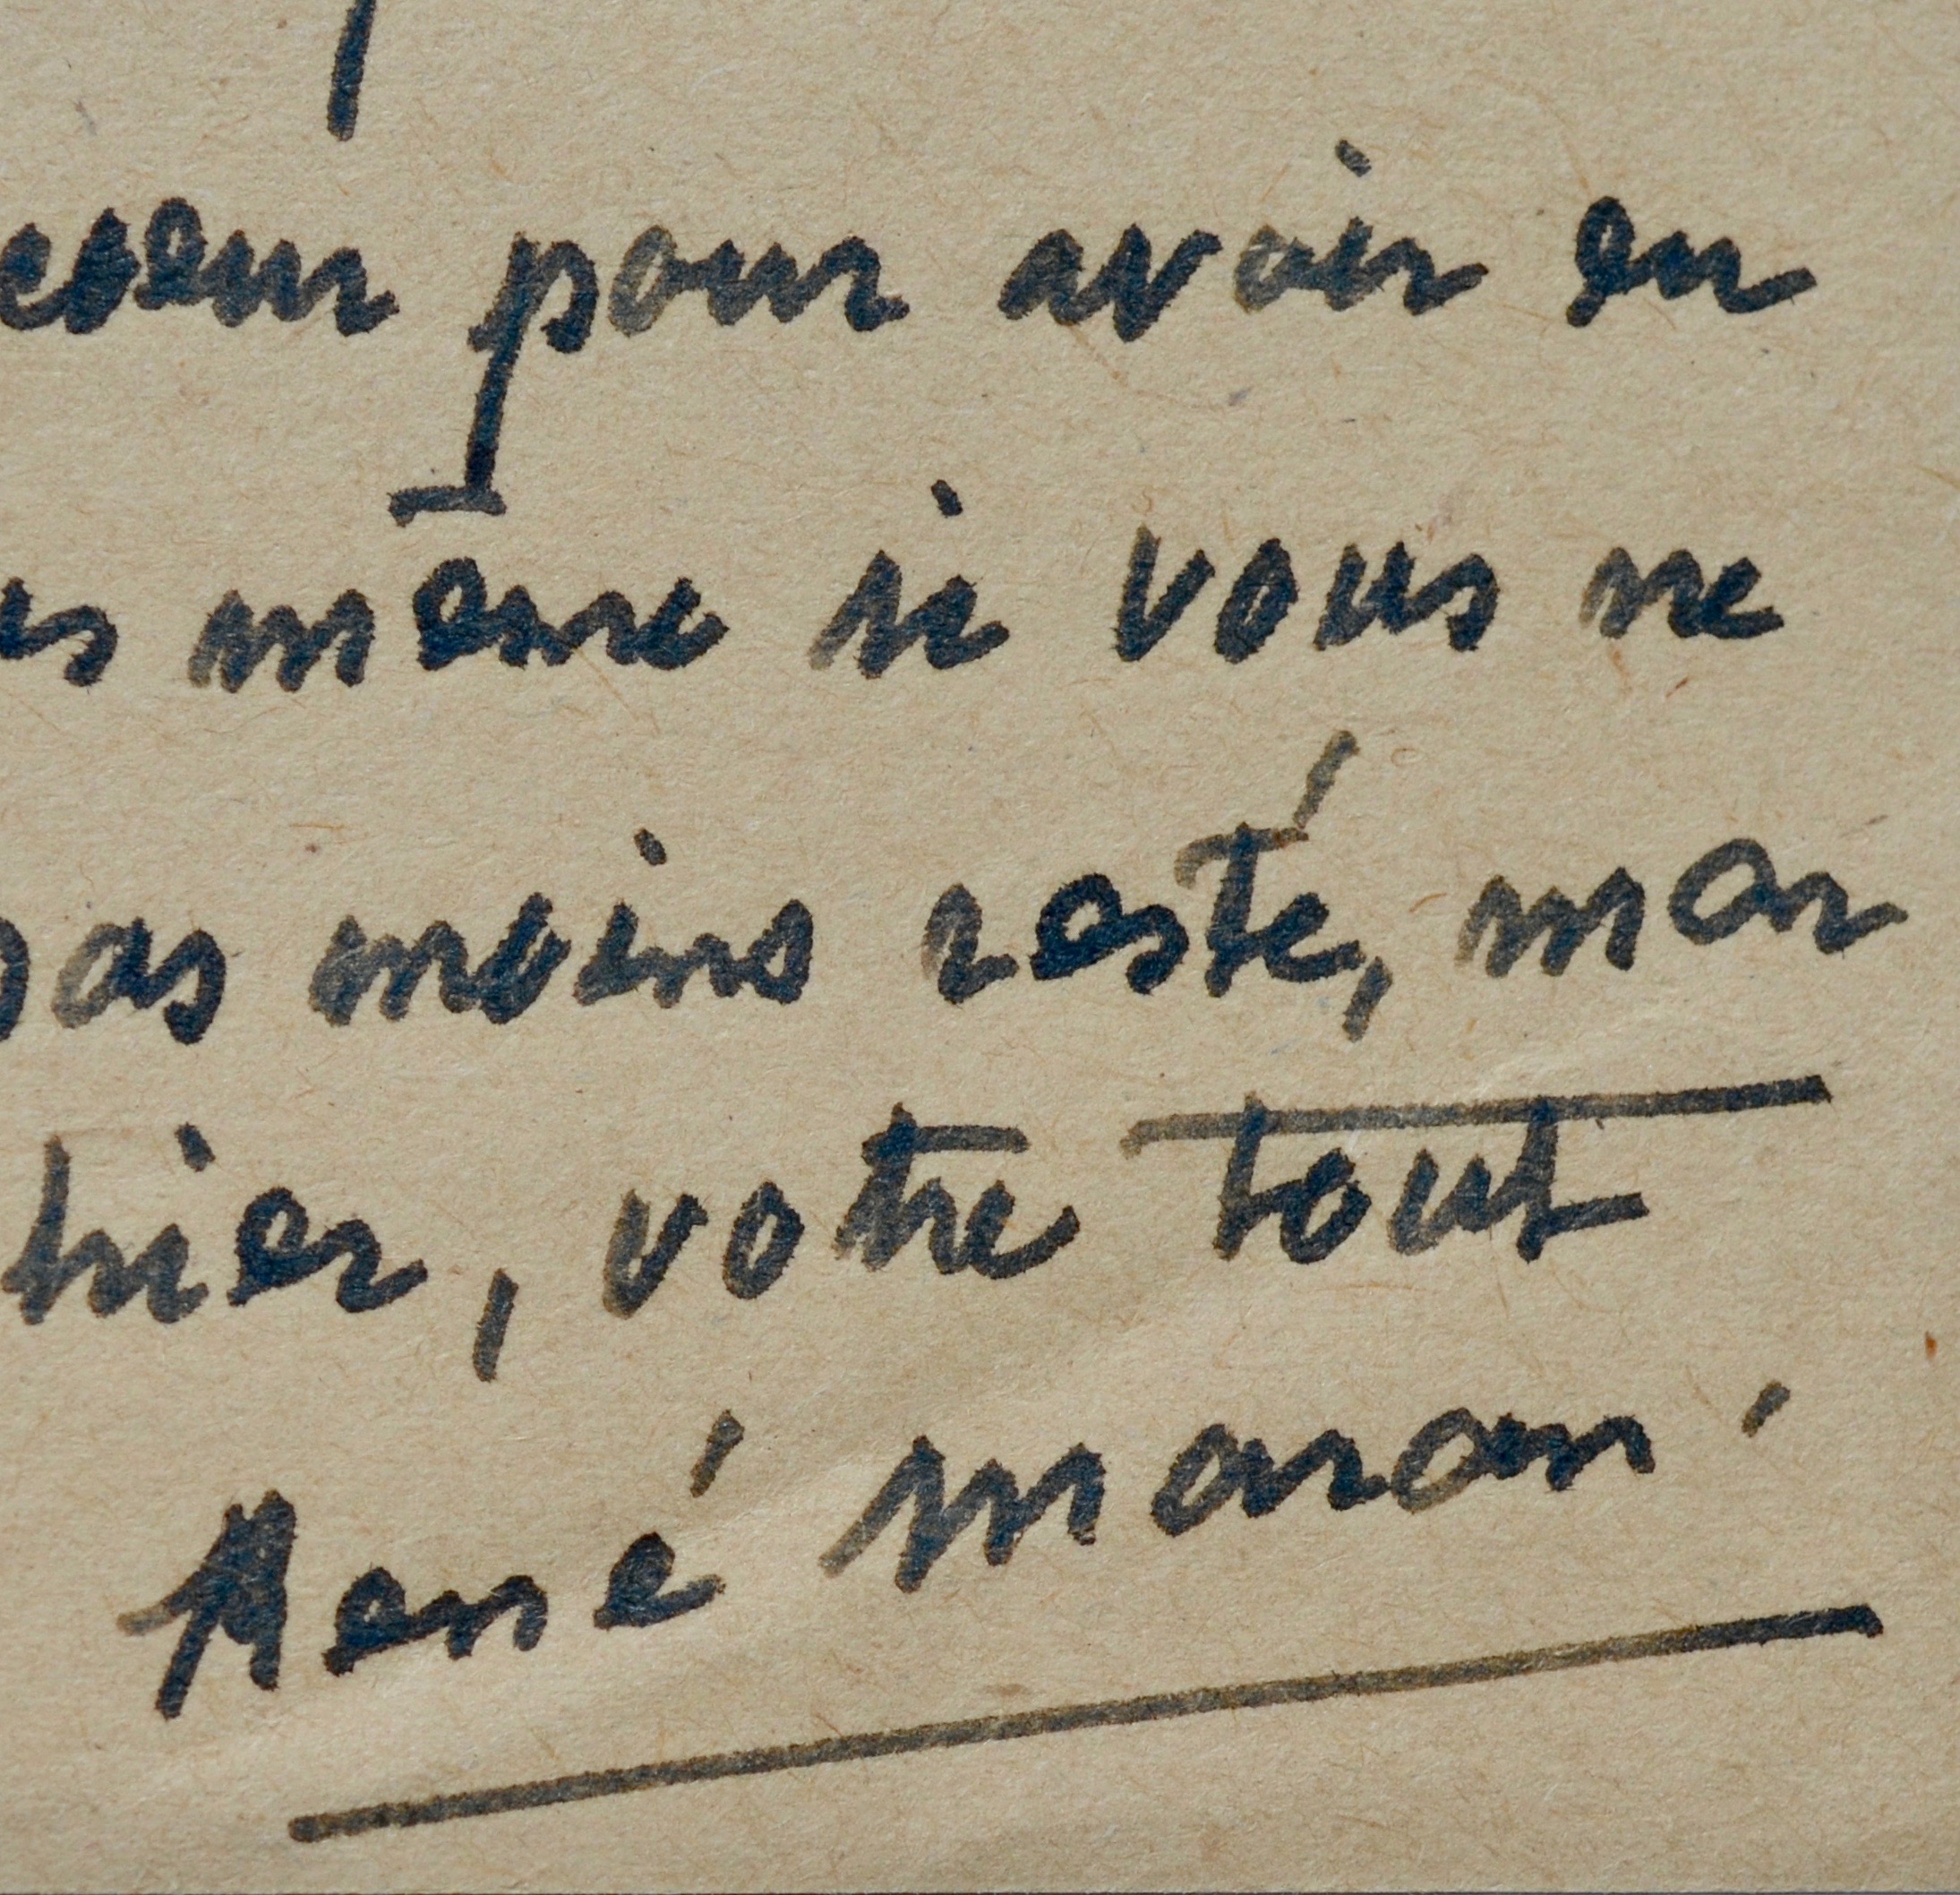 coeur pour avoir eu
us même si vous ne
pas moins resté, mon
hier, votre tout
René Maran